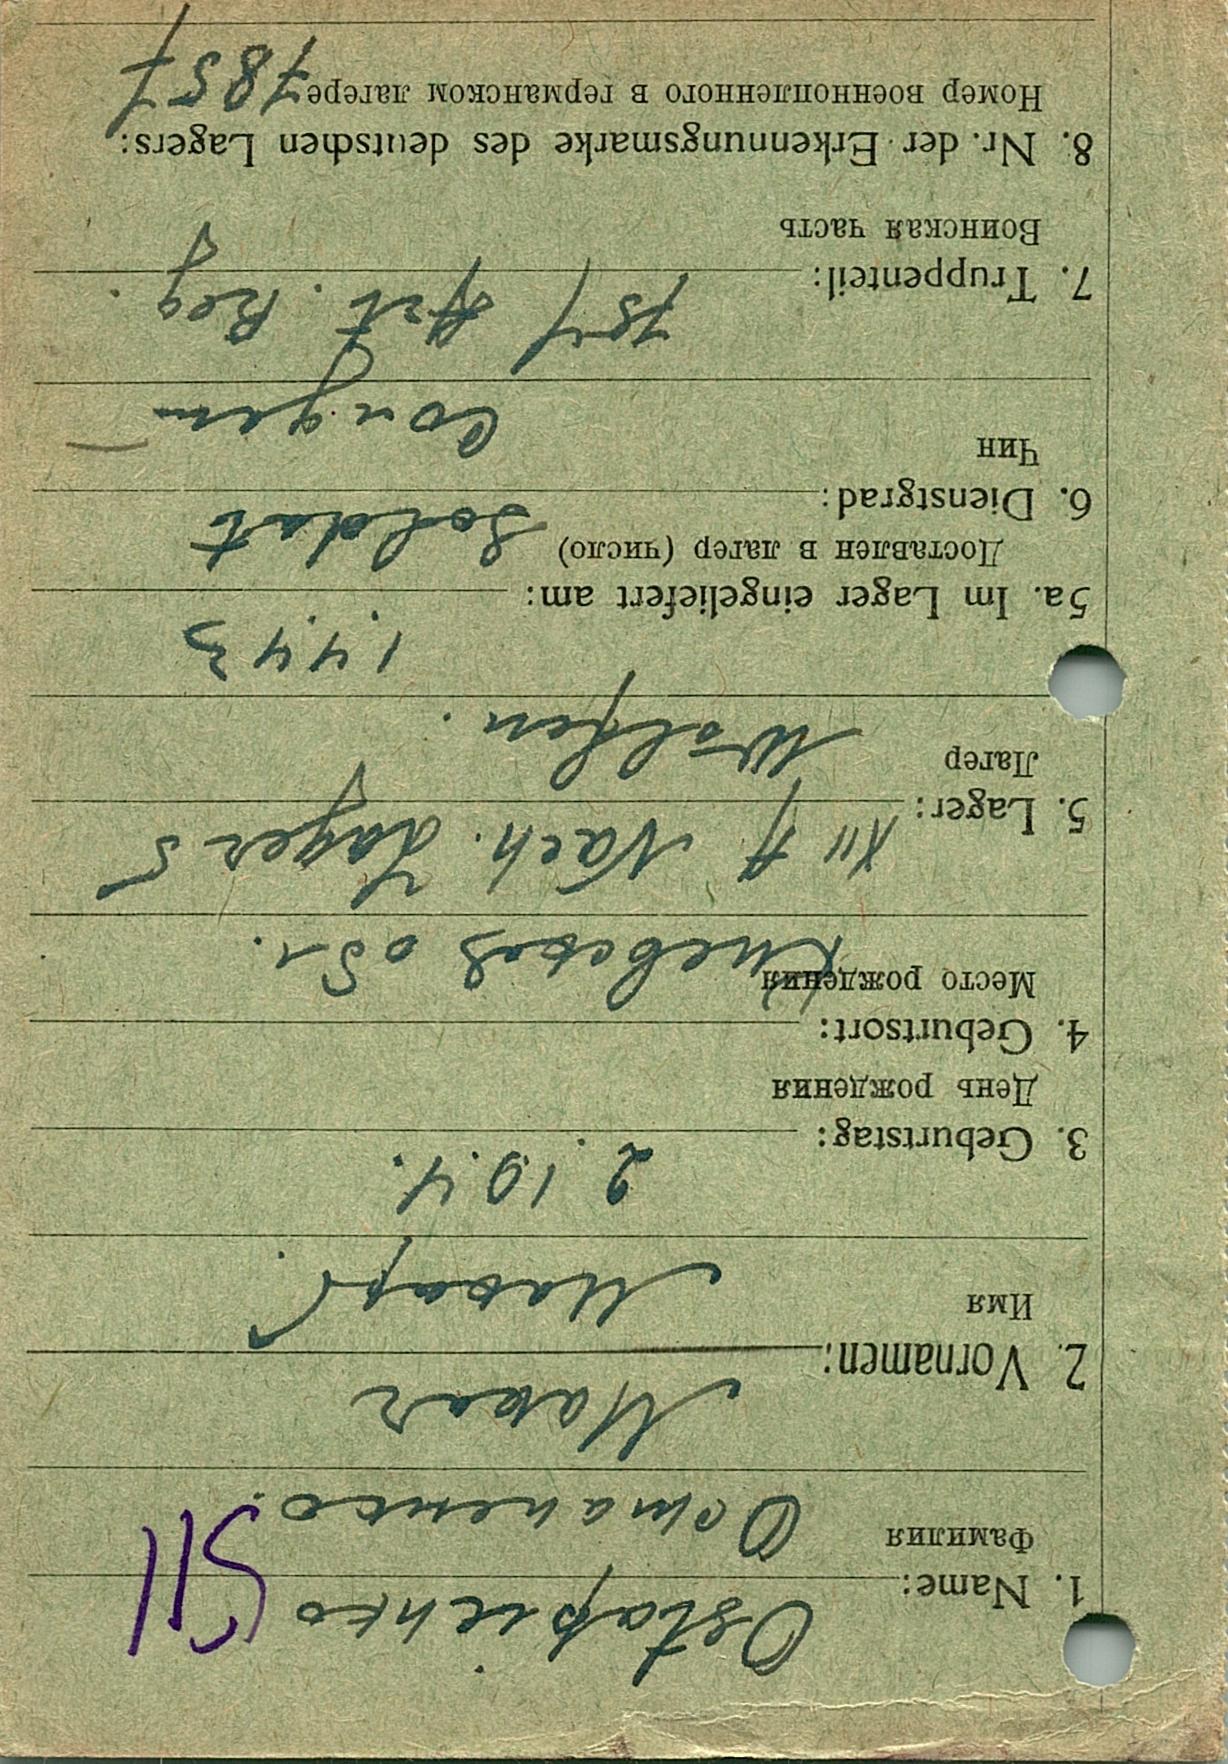 1. Name: Ostapienko
Фамилия Остапенко. 511
2. Vornamen: Makar
Имя Макар
3. Geburtstag: 2.19.4.
День рождения
4. Geburtsort:
Место рождения Киевская обл.
5. Lager: XII A Nach. Lager 5
Лагер Wolfen.
5a. Im Lager eingeliefert am: 1.4.43
Доставлен в лагер (число)
6. Dienstgrad: Soldat
Чин Солдат
7. Truppenteil: Art. Reg.
Воинская часть
8. Nr. der Erkennungsmarke des deutschen Lagers:
Номер военнопленного в германском лагере 7857